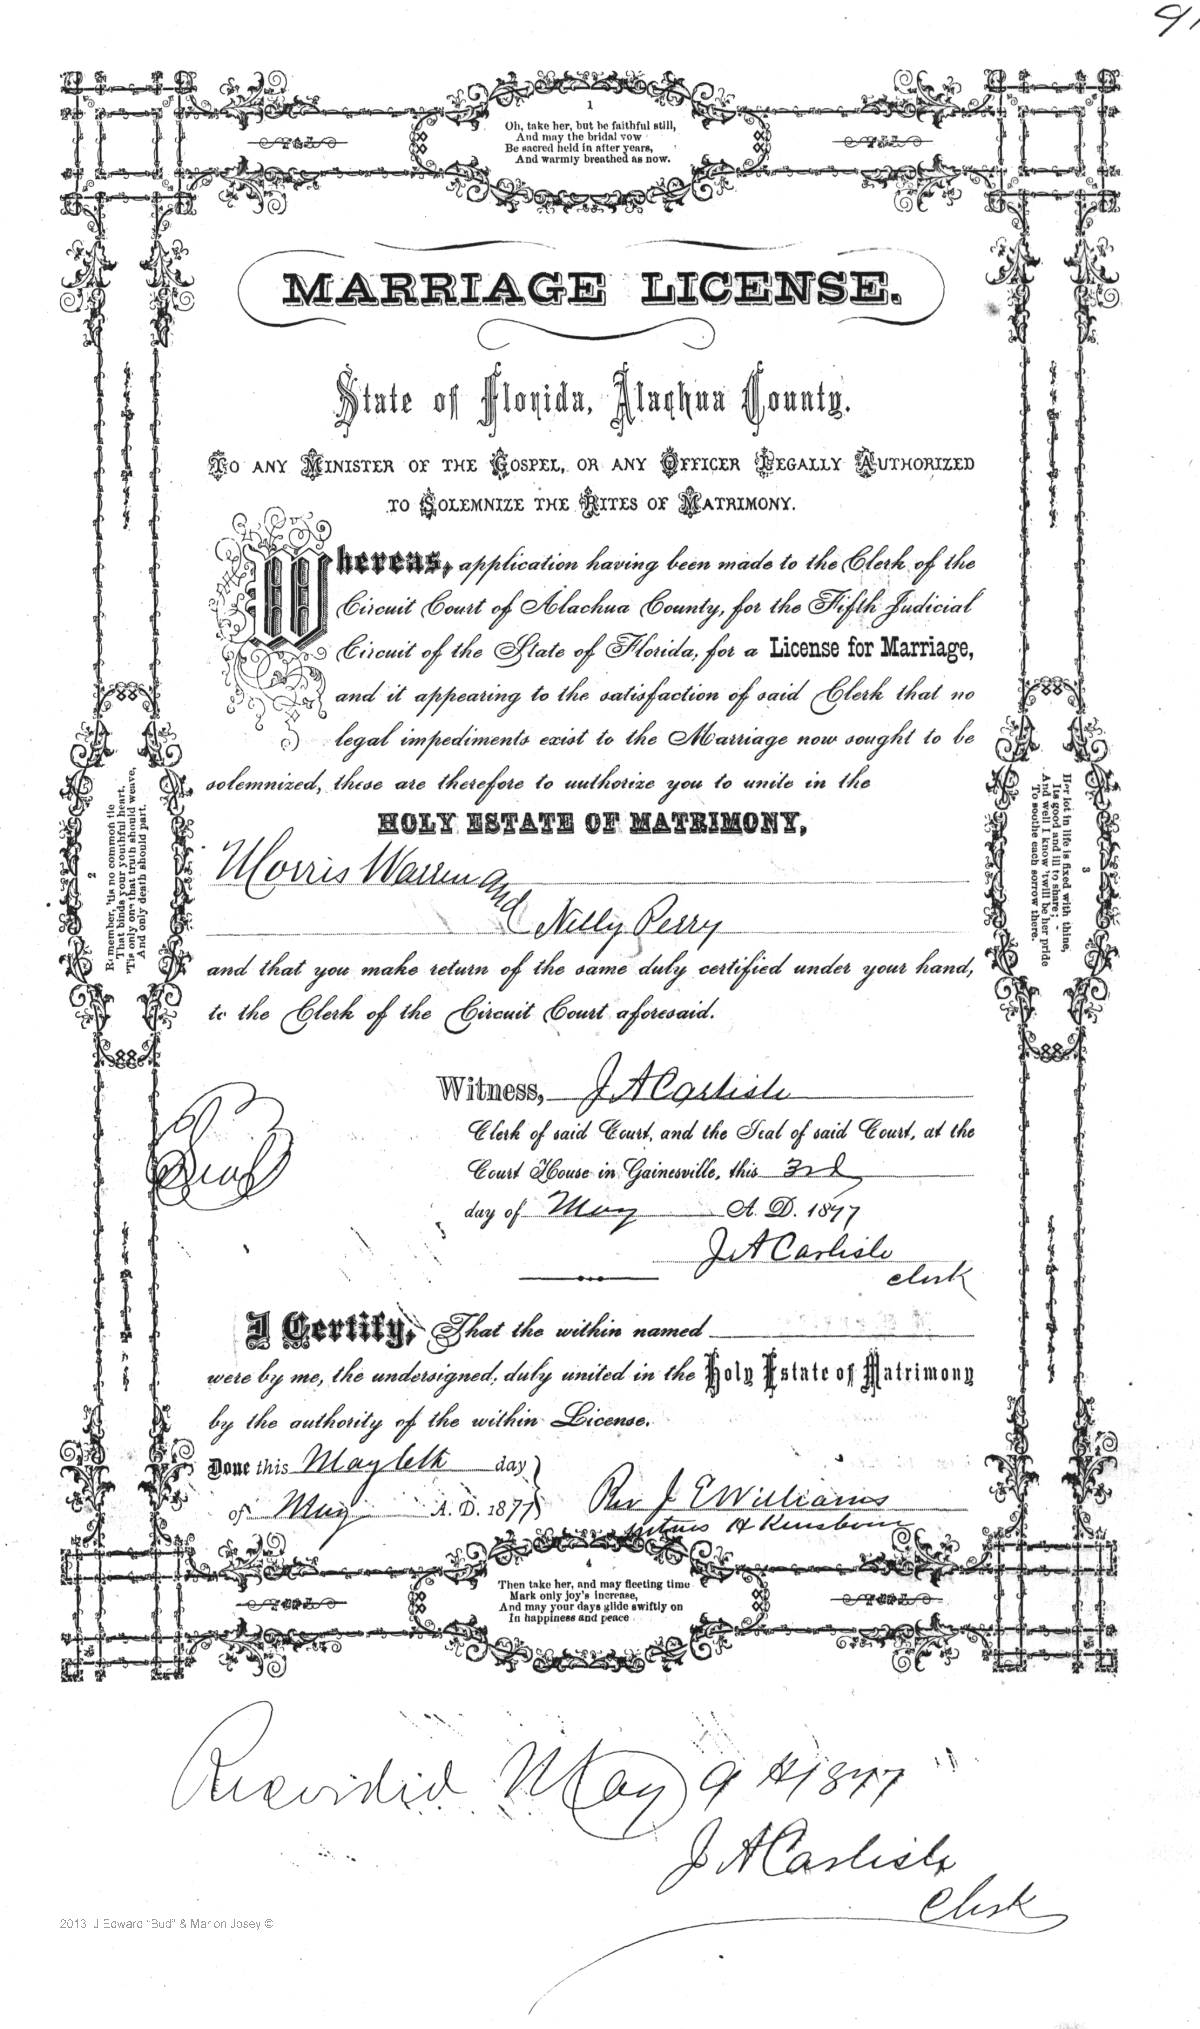 1
Oh, take her, but be faithful still,
And may the bridal vow
Be sacred held in after years,
And warmly breathed as now.
MARRIAGE LICENSE.
State of Florida, Alachua County.
TO ANY MINISTER OF THE GOSPEL, OR ANY OFFICER LEGALLY AUTHORIZED
TO SOLEMNIZE THE RITES OF MATRIMONY.
Whereas, application having been made to the Clerk of the
Circuit Court of Alachua County, for the Fifth Judicial
Circuit of the State of Florida, for a License for Marriage,
and it appearing to the satisfaction of said Clerk that no
legal impediments exist to the Marriage now sought to be
solemnized, these are therefore to authorize you to unite in the
HOLY ESTATE OF MATRIMONY,
Morris Warren and
Nelly Perry
and that you make return of the same duly certified under your hand,
to the Clerk of the Circuit Court aforesaid.
2
Remember, 'tis no common tie
That binds your youthful heart,
'Tis only one that truth should weave,
And only death should part.
3
Her lot in life is fixed with thine,
Its good and ill to share;
And well I know 'twill be her pride
To soothe each sorrow there.
Witness, J A Carlisle
Clerk of said Court, and the Seal of said Court, at the
Seal
Court House in Gainesville, this 3rd
day of May A. D. 1877
J A Carlisle
clerk
I Certify, That the within named
were by me, the undersigned, duly united in the Holy Estate of Matrimony
by the authority of the within License.
Done this May 6th day
of May A. D. 1877
Rev J E Williams
H
4
Then take her, and may fleeting time
Mark only joy's increase,
And may your days glide swiftly on
In happiness and peace
Recorded May 9th 1877
J A Carlisle
Clerk
2013 J Edward "Bud" & Marion Josey ©